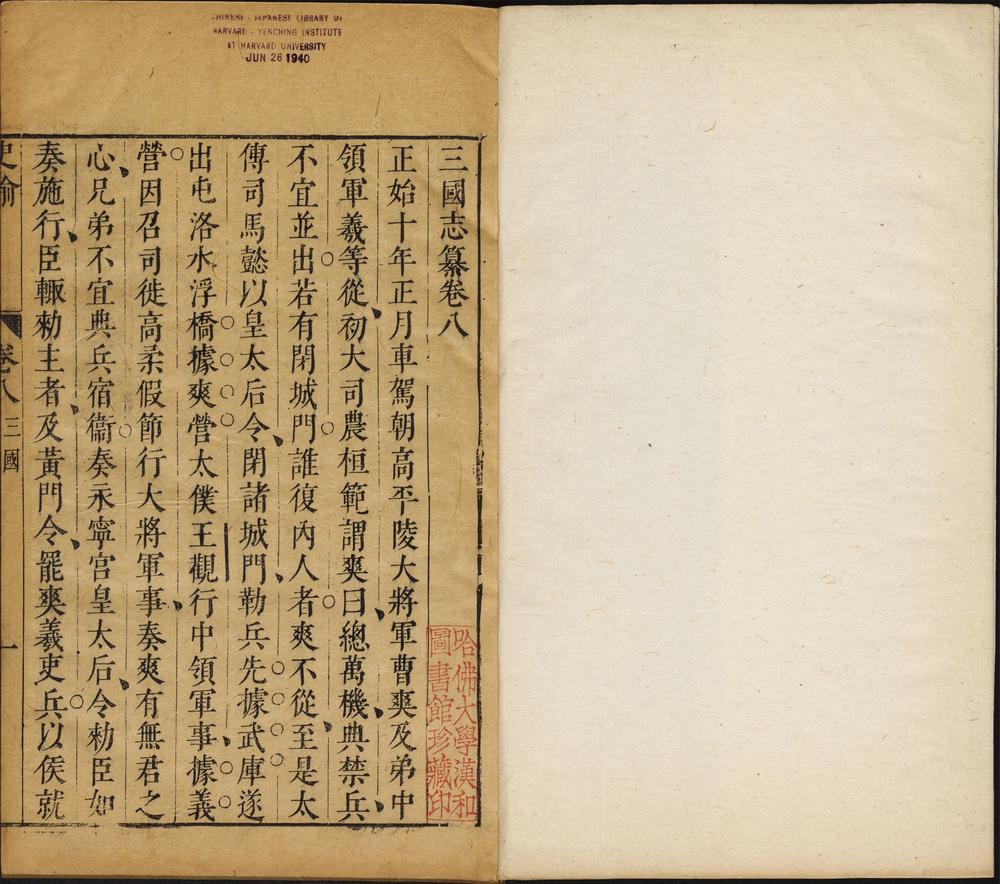 CHINESE - JAPANESE LIBRARY OF
HARVARD - YENCHING INSTITUTE
AT HARVARD UNIVERSITY
JUN 26 1940
三國志纂卷八
正始十年正月車駕朝高平陵大將軍曹爽及弟中
領軍羲等從初大司農桓範謂爽曰總萬機典禁兵
不宜並出若有閉城門誰復內人者爽不從至是太
傅司馬懿以皇太后令閉諸城門勒兵先據武庫遂
出屯洛水浮橋據爽營太僕王觀行中領軍事據義
營因召司徒高柔假節行大將軍事奏爽有無君之
心兄弟不宜典兵宿衞奏永寧宮皇太后令勑臣如
奏施行臣輙勑主者及黃門令罷爽羲吏兵以侯就
卷八
三國
一
哈佛大學漢和
圖書館珍藏印